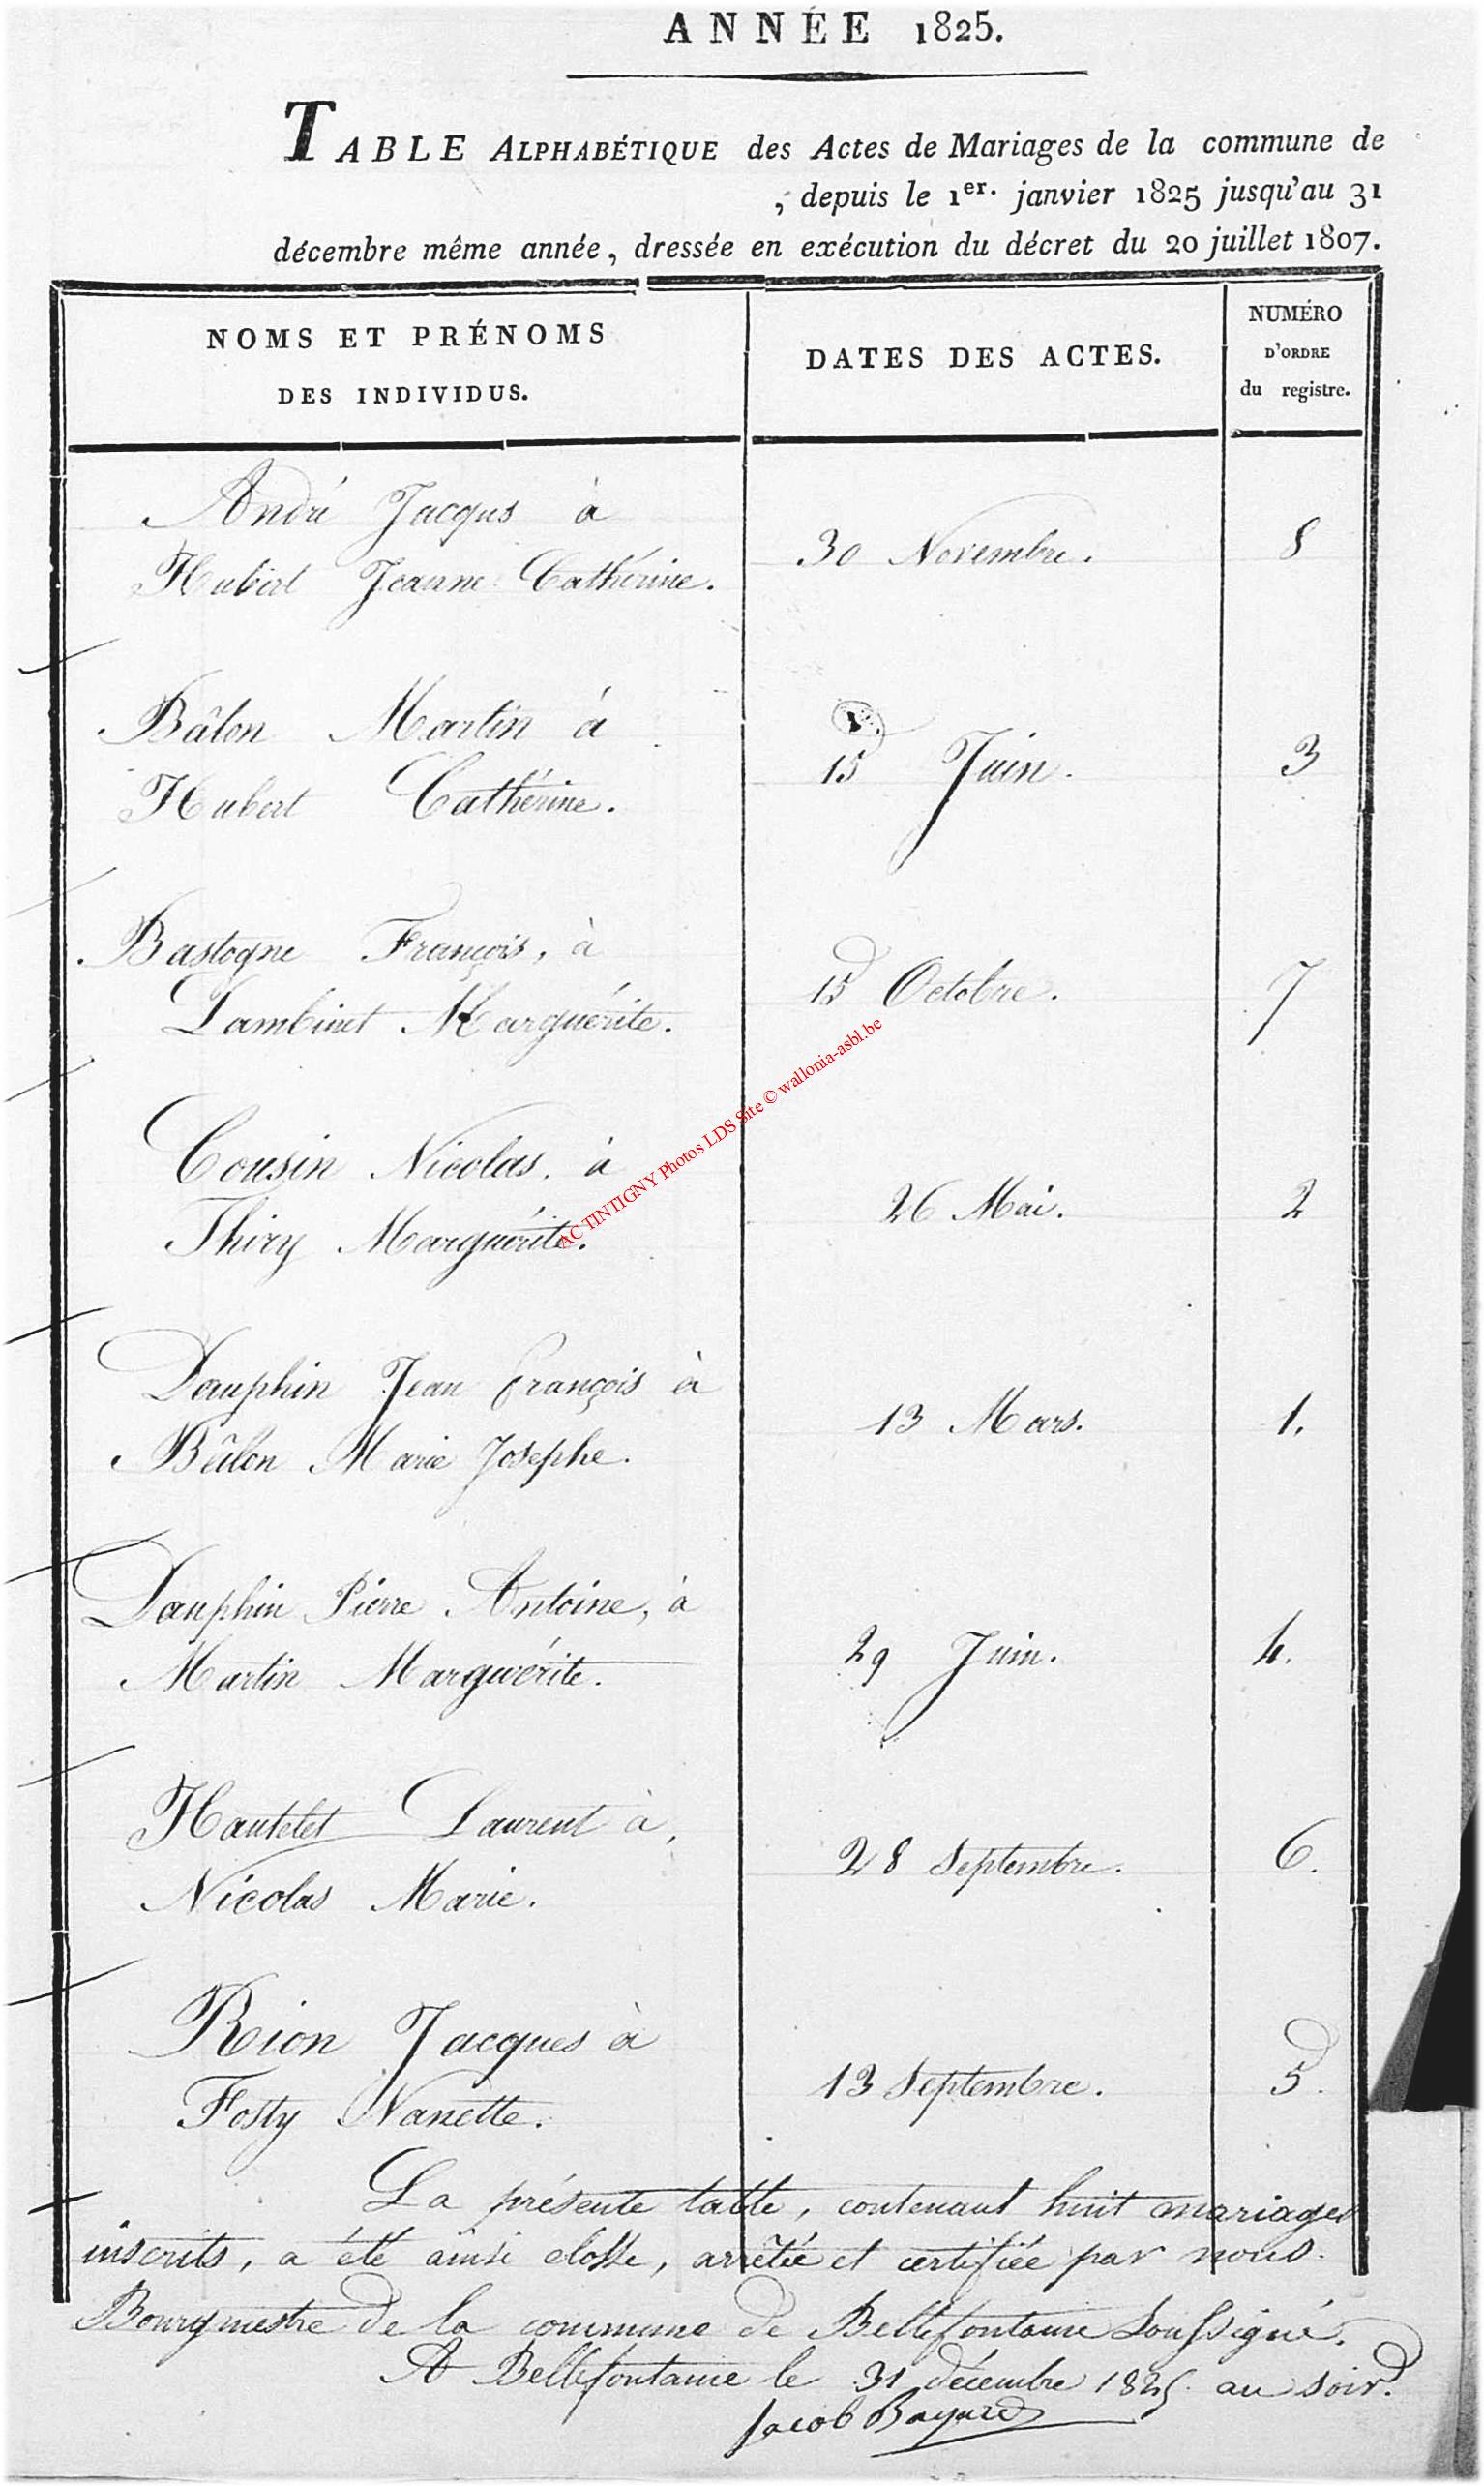 ANNÉE 1825.
TABLE ALPHABÉTIQUE des Actes de Mariages de la commune de
, depuis le 1er. janvier 1825 jusqu'au 31
décembre même année, dressée en exécution du décret du 20 juillet 1807.
NOMS ET PRÉNOMS
DES INDIVIDUS.
DATES DES ACTES.
NUMÉRO
D'ORDRE
du registre.
André Jacques à
Hubert Jeanne Cathérine.
30 Novembre.
8
Bâlon Martin à
Hubert Cathérine.
15 Juin.
3
Bastogne François, à
Lambinet Marguérite.
15 Octobre.
7
Cousin Nicolas. à
Thiry Marguérite.
26 Mai.
2
Dauphin Jean françois à
Bâlon Marie Josephe.
13 Mars.
1.
Dauphin Pierre Antoine, à
Martin Marguérite.
29 Juin.
4.
Hautelet Laurent à,
Nicolas Marie.
28 Septembre.
6.
Rion Jacques à
Fosty Nanette.
13 Septembre.
5.
La présente table, contenant huit mariages
inscrits, a été ainsi closse, arrêtée et certifiée par nous.
Bourgmestre de la commune de Bellefontaine Soussigné.
A Bellefontaine le 31 décembre 1825. au soir.
Jacob Bayard
AC TINTIGNY Photos LDS Site © wallonia-asbl.be